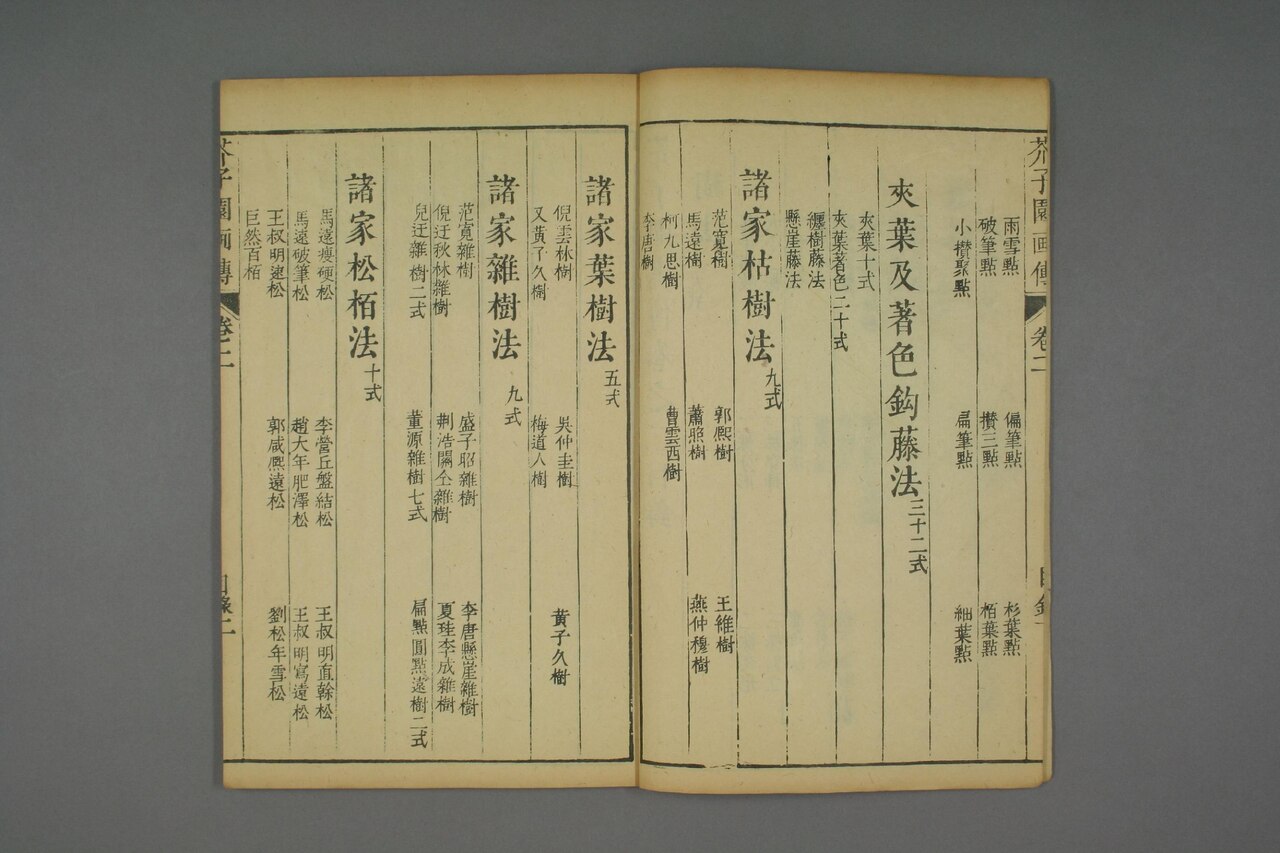 芥子園画傳 卷二 目錄
雨雪點 偏筆點 杉葉點
破筆點 攢三點 栢葉點
小攢聚點 扁筆點 細葉點
夾葉及著色鈎藤法三十二式
夾葉十式
夾葉著色二十式
纏樹藤法
懸崖藤法
諸家枯樹法九式
范寬樹 郭熙樹 王維樹
馬遠樹 蕭照樹 燕仲穆樹
柯九思樹 曹雲西樹
李唐樹
諸家葉樹法五式
倪雲林樹 吳仲圭樹 黃子久樹
又黃子久樹 梅道人樹
諸家雜樹法九式
范寬雜樹 盛子昭雜樹 李唐懸崖雜樹
倪迂秋林雜樹 荆浩關仝雜樹 夏珪李成雜樹
兒迂雜樹二式 董源雜樹七式 扁點圓點遠樹二式
諸家松栢法十式
馬遠瘦硬松 李營丘盤結松 王叔明直幹松
馬遠破筆松 趙大年肥澤松 王叔明寫遠松
王叔明遠松 郭咸熙遠松 劉松年雪松
巨然百栢
芥子園画傳 卷二 目錄二